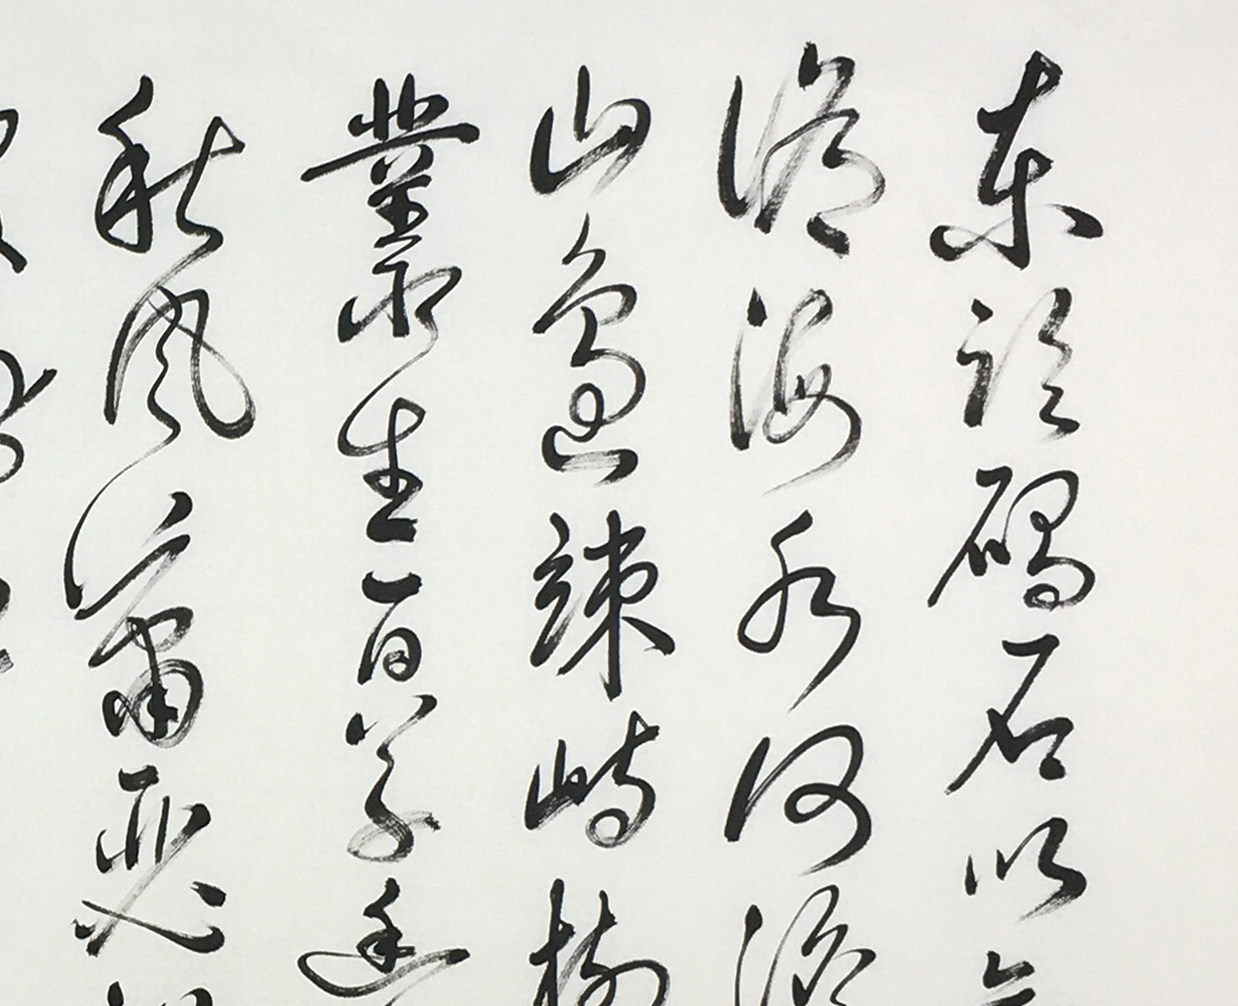 东临碣石以
沧海水何澹
山岛竦峙树
丛生百草丰
秋风萧瑟洪